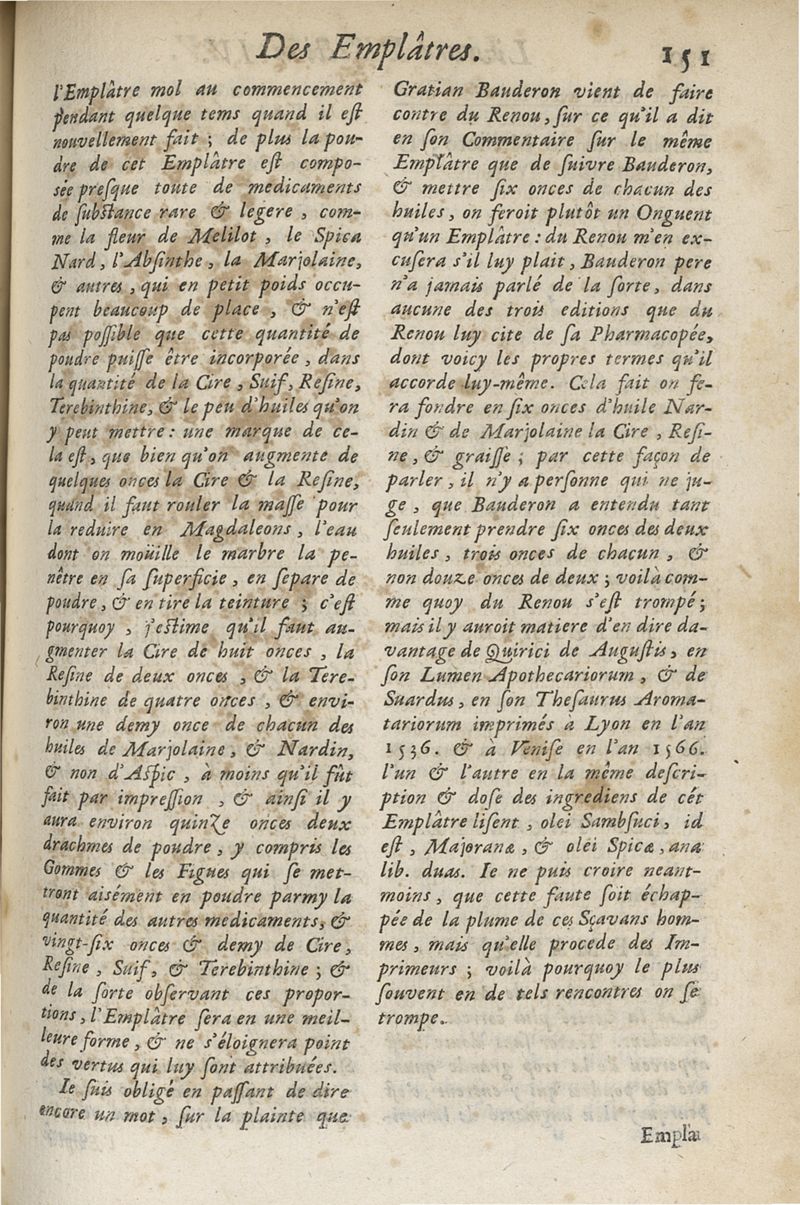 Des Emplâtres. 151
l'Emplâtre mol au commencement
pendant quelque tems quand il eſt
nouvellement fait ; de plus la pou-
dre de cet Emplâtre eſt compo-
sée preſque toute de medicaments
de ſubſtance rare & legere , com-
me la fleur de Melilot , le Spica
Nard , l'Abſinthe , la Marjolaine,
& autres , qui en petit poids occu-
pent beaucoup de place , & n'eſt
pas poſſible que cette quantité de
poudre puiſſe être incorporée , dans
la quantité de la Cire , Suif, Reſine,
Terebinthine, & le peu d'huiles qu'on
y peut mettre : une marque de ce-
la eſt , que bien qu'on augmente de
quelques onces la Cire & la Reſine,
quand il faut rouler la maſſe pour
la reduire en Magdaleons , l'eau
dont on moüille le marbre la pe-
nêtre en ſa ſuperficie , en ſepare de
poudre , & en tire la teinture ; c'eſt
pourquoy , j'eſtime qu'il faut au-
gmenter la Cire de huit onces , la
Reſine de deux onces , & la Tere-
binthine de quatre onces , & envi-
ron une demy once de chacun des
huiles de Marjolaine , & Nardin,
& non d'Aſpic , à moins qu'il fût
fait par impreſſion , & ainſi il y
aura environ quinZe onces deux
drachmes de poudre , y compris les
Gommes & les Figues qui ſe met-
tront aisément en poudre parmy la
quantité des autres medicaments, &
vingt-ſix onces & demy de Cire,
Reſine , Suif, & Terebinthine ; &
de la ſorte obſervant ces propor-
tions , l'Emplâtre ſera en une meil-
leure forme , & ne s'éloignera point
des vertus qui luy ſont attribuées.
Ie ſuis obligé en paſſant de dire
encore un mot , ſur la plainte que
Gratian Bauderon vient de faire
contre du Renou, ſur ce qu'il a dit
en ſon Commentaire ſur le même
Emplâtre que de ſuivre Bauderon,
& mettre ſix onces de chacun des
huiles , on feroit plutôt un Onguent
qu'un Emplâtre : du Renou m'en ex-
cuſera s'il luy plait , Bauderon pere
n'a jamais parlé de la ſorte , dans
aucune des trois editions que du
Renou luy cite de ſa Pharmacopée,
dont voicy les propres termes qu'il
accorde luy-même. Cela fait on fe-
ra fondre en ſix onces d'huile Nar-
din & de Marjolaine la Cire , Reſi-
ne , & graiſſe ; par cette façon de
parler , il n'y a perſonne qui ne ju-
ge , que Bauderon a entendu tant
ſeulement prendre ſix onces des deux
huiles , trois onces de chacun , &
non douze onces de deux ; voilà com-
me quoy du Renou s'eſt trompé ;
mais il y auroit matiere d'en dire da-
vantage de Quirici de Auguſtis , en
ſon Lumen Apothecariorum , & de
Suardus , en ſon Theſaurus Aroma-
tariorum imprimés à Lyon en l'an
1536. & à Veniſe en l'an 1566.
l'un & l'autre en la même deſcri-
ption & doſe des ingrediens de cét
Emplâtre liſent , olei Sambſuci , id
eſt , Majoranæ , & olei Spicæ , ana
lib. duas. Ie ne puis croire neant-
moins , que cette faute ſoit échap-
pée de la plume de ces Sçavans hom-
mes , mais qu'elle procede des Im-
primeurs ; voilà pourquoy le plus
ſouvent en de tels rencontres on ſe
trompe.
Emplâ